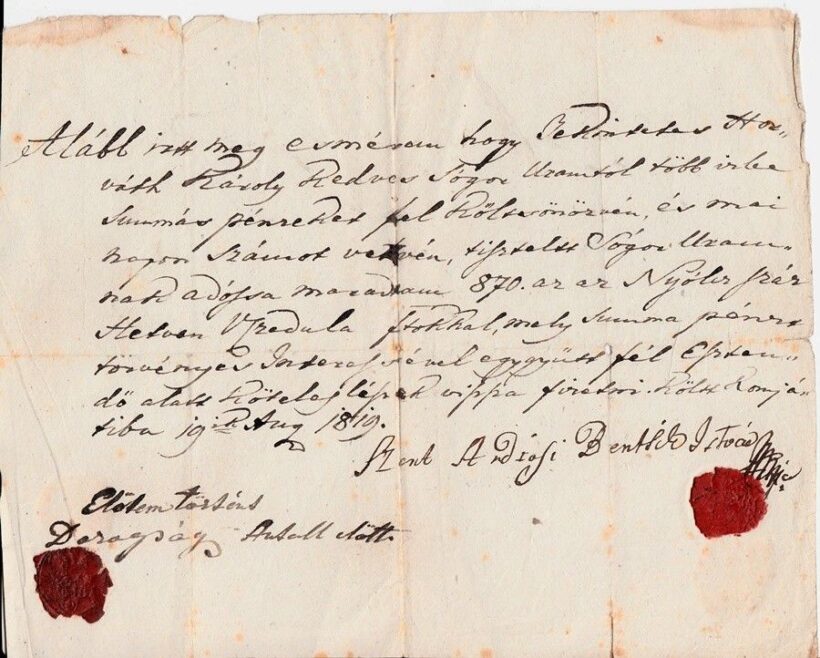 Alább irtt meg esmérem hogy Tekintetes Hor„
váth Károly Kedves Sógor Uramtól több izbe
Summás pénzeket fel költsönözvén, és mai
napon számot vetvén, tisztelt Sógor Uram„
nak adóssa maradtam 870. az az Nyóltz száz
Hetven Vzedula ftokkal, mely Summa pénzt
törvényes Interessével eggyütt fél Eszten„
dő alatt köteles lészek vissza fizetni. Költ Komjá„
tiba 19ik Aug 1819.
Szent András Bentsik István
Előttem történt
Antall előtt